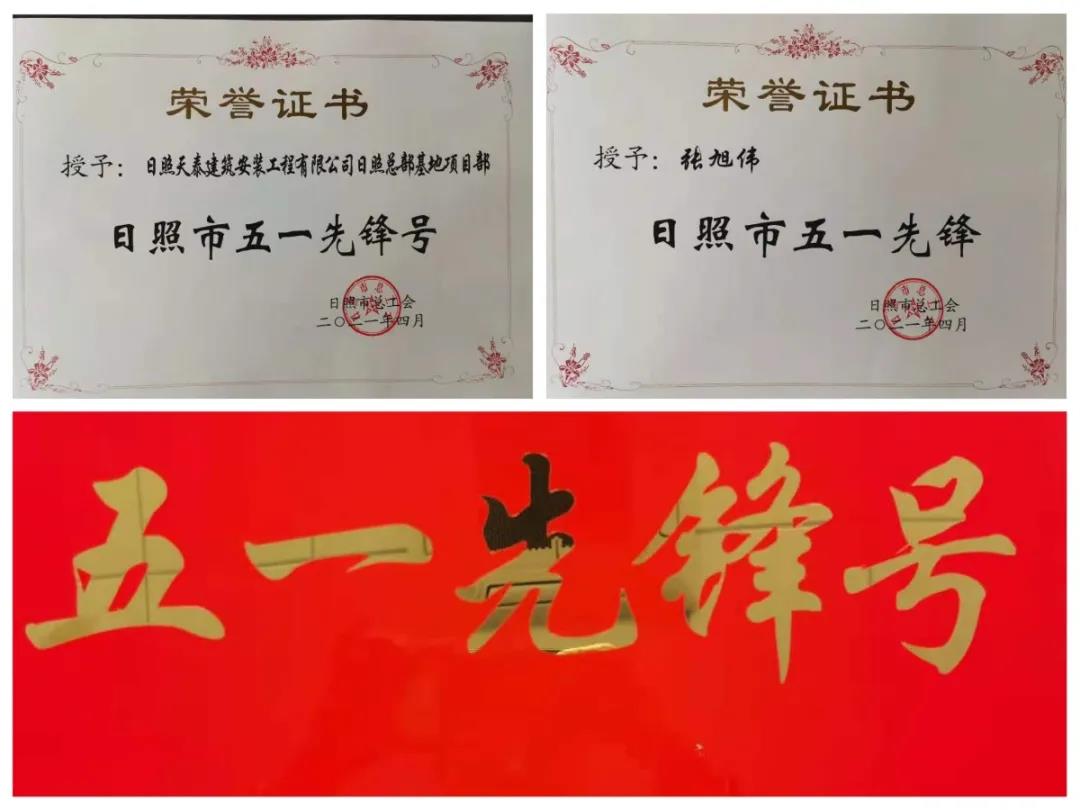 荣誉证书
授予：日照天泰建筑安装工程有限公司日照总部基地项目部
日照市五一先锋号
日照市总工会
二〇二一年四月
荣誉证书
授予：张旭伟
日照市五一先锋
日照市总工会
二〇二一年四月
五一先锋号